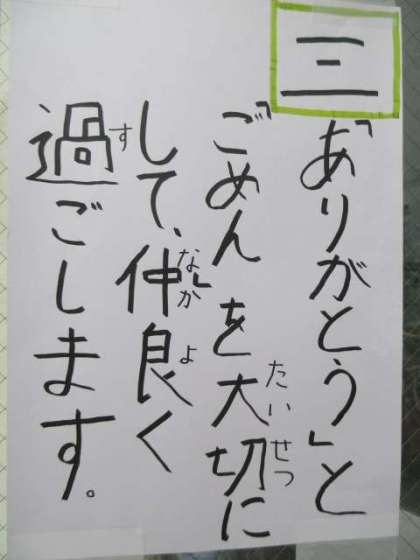 三
「ありがとう」と
「ごめん」を大切に
たいせつ
して、仲良く
なかよ
過ごします。
す